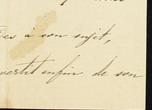 à son sujet,
vertit enfin de son